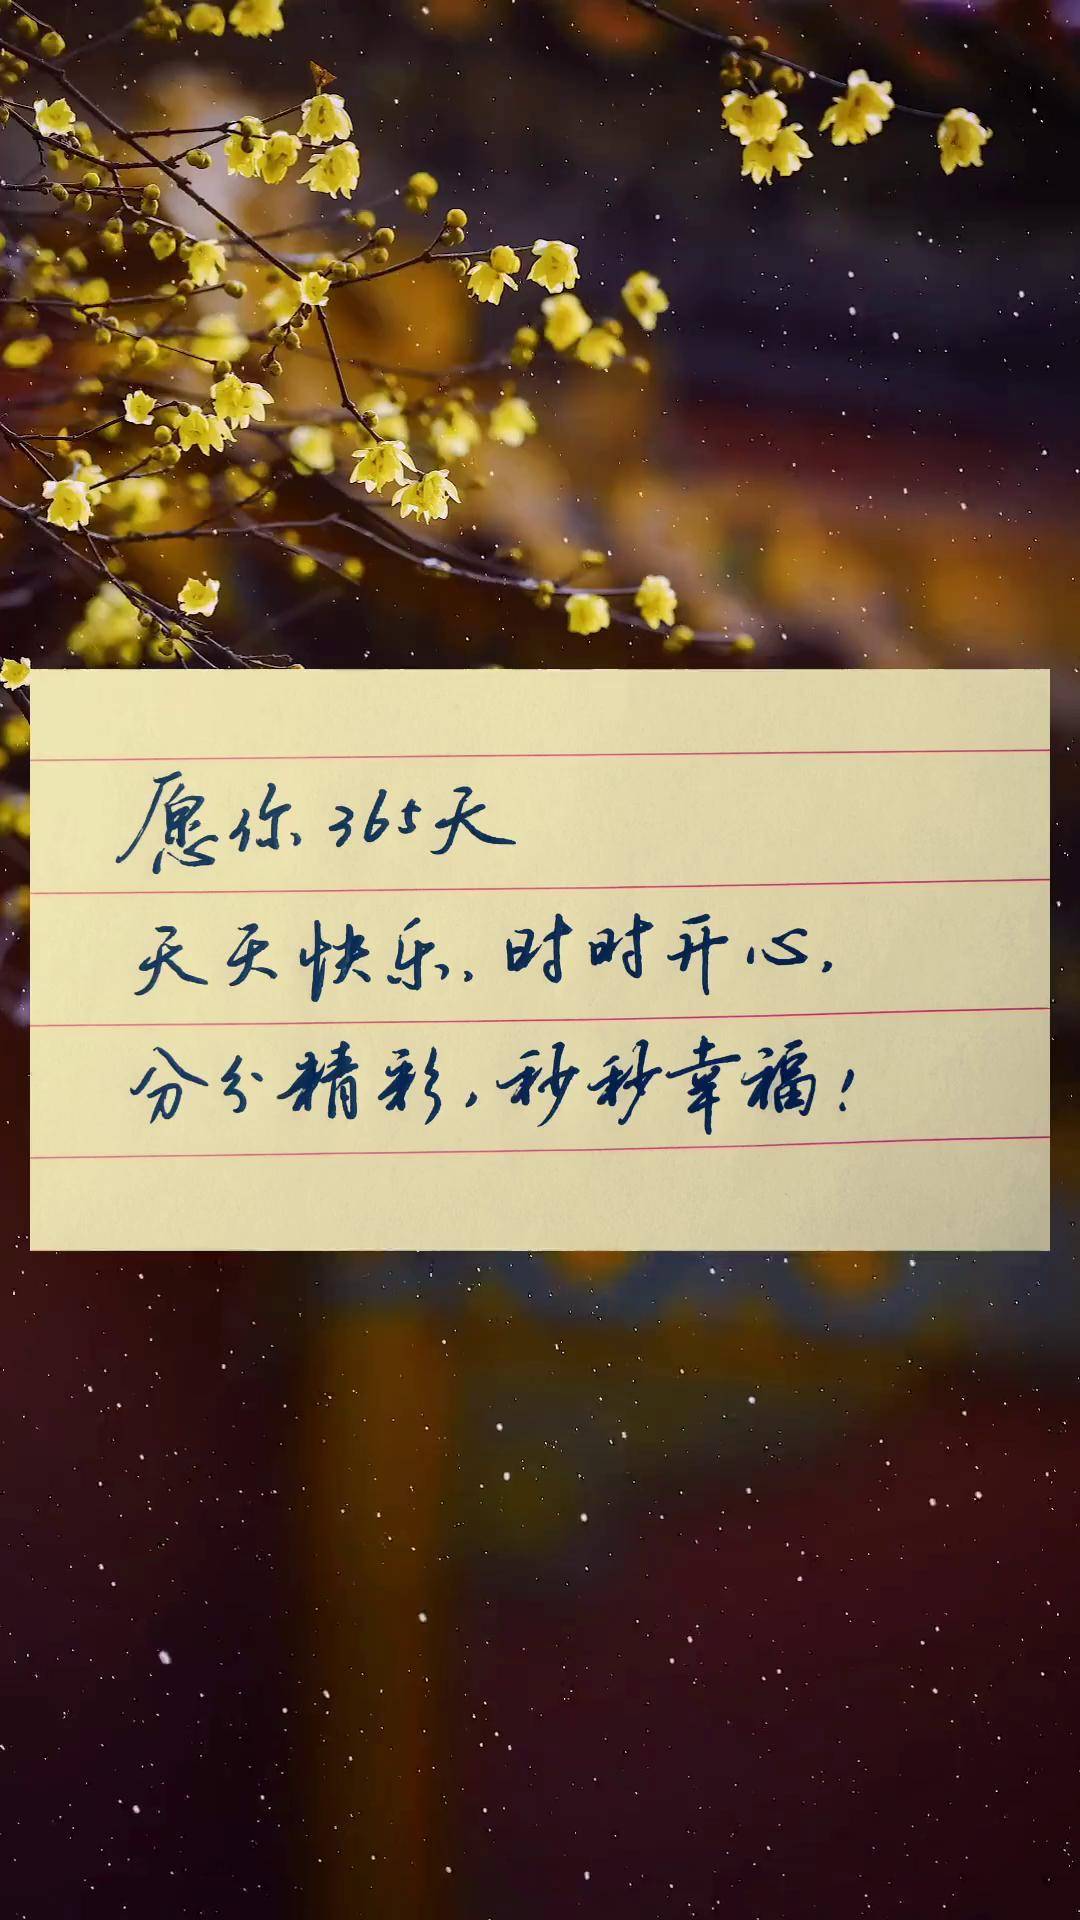 愿你365天
天天快乐,时时开心,
分分精彩,秒秒幸福!